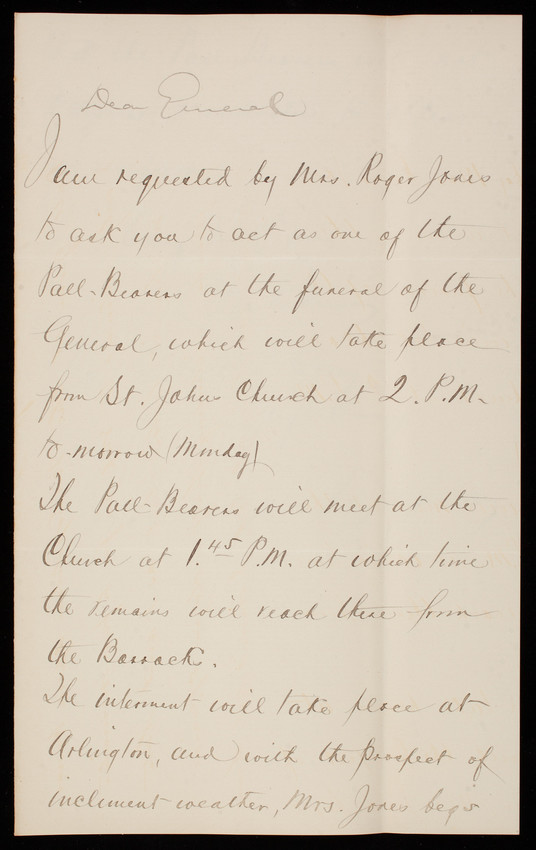 Dear General
I am requested by Mrs. Roger Jones
to ask you to act as one of the
Pall-Bearers at the funeral of the
General, which will take place
from St. Johns Church at 2. P.M.
to-morrow (Monday)
The Pall-Bearers will meet at the
Church at 1.45 P.M. at which time
the remains will reach there from
the Barracks.
The interment will take place at
Arlington, and with the prospect of
incliment weather, Mrs. Jones begs